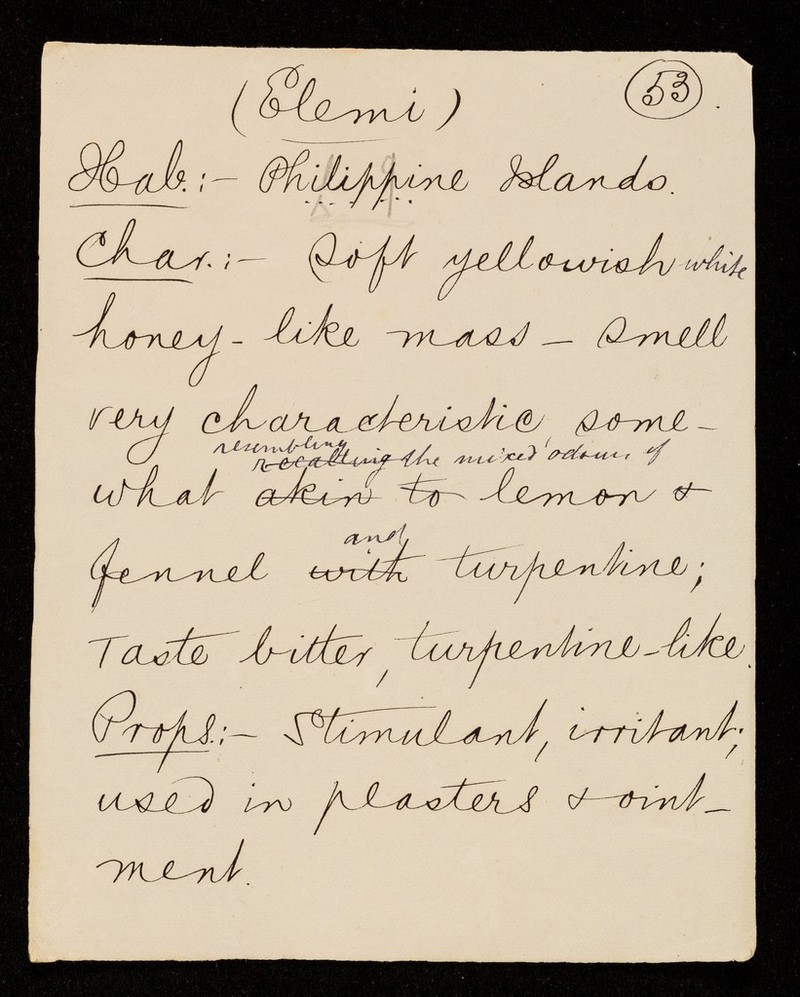 (Elemi) 53.
Hab:- Philippine Islands.
Char.:- Soft yellowish white
honey-like mass - smell
very characteristic, some-
resembling
recalling the mixed odour of
what akin to lemon &
and
fennel with turpentine;
Taste bitter, turpentine-like.
Props:- Stimulant, irritant;
used in plasters & oint-
ment.